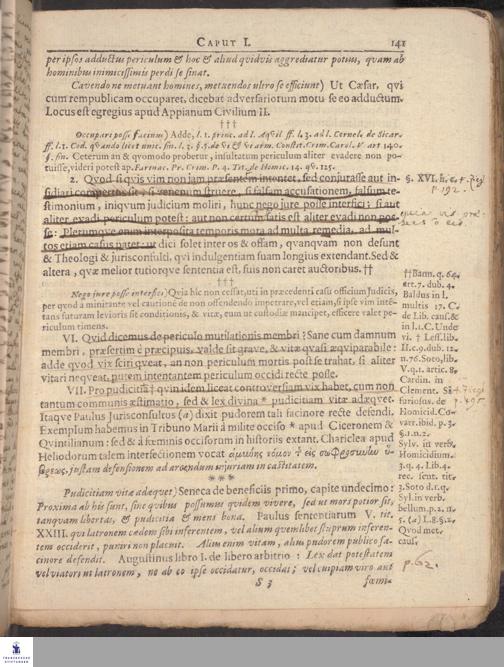 CAPUT I.
141
per ipsos adductus periculum & hoc & aliud quidvis aggrediatur potius, quam ab
hominibus inimicissimis perdi se sinat.
Cavendo ne metuant homines, metuendos ultro se efficiunt) Ut Cæsar, qvi
cum rempublicam occuparet, dicebat adversariorum motu se eo adductum.
Locus est egregius apud Appianum Civilium II.
†††
Occupare posse facinus) Adde, l. 1. princ. ad l. Aqvil ff. l. 3. ad l. Cornel. de Sicar.
ff. l. 2. Cod. qvando licet unic. sin. l. 3. §. 5. de Vi & vi arm. Constit. Crim. Carol. V. art. 140.
§. fin. Ceterum an & qvomodo probetur, insultatum periculum aliter evadere non po-
tuisse, videri potest ap. Farinac. Pr. Crim. P. 4. Tit. de Homic. 14. qv. 125.
2. Qvod si qvis vim non jam præsentem intentet, sed conjurasse aut in-
sidiari compertus sit, si venenum struere, si falsam accusationem, falsum te-
stimonium, iniqvum judicium moliri, hunc nego jure posse interfici; si aut
aliter evadi periculum potest: aut non certum satis est aliter evadi non pos-
se: Plerumqve enim interposita temporis mora ad multa remedia, ad mul-
tos etiam casus patet: ut dici solet inter os & offam, quanqvam non desunt
& Theologi & jurisconsulti, qvi indulgentiam suam longius extendant. Sed &
altera, qvæ melior tutiorqve sententia est, suis non caret auctoribus. ††
†††
Nego jure posse interfici) Qvia hic non cessat, uti in præcedenti casu officium Judicis,
per qvod a minitante vel cautione de non offendendo impetrare, vel etiam, si ipse vim inten-
tans futuram levioris sit conditionis, & vitæ, eum ut custodiæ mancipet, efficere valet pe-
riculum timens.
VI. Quid dicemus de periculo mutilationis membri? Sane cum damnum
membri, præsertim è præcipuis, valde sit grave, & vitæ qvasi æqviparabile:
adde qvod vix sciri qveat, an non periculum mortis post se trahat, si aliter
vitari neqveat, putem intentantem periculum occidi recte posse.
VII. Pro pudicitia † qvin idem liceat controversiam vix habet, cum non
tantum communis æstimatio, sed & lex divina * pudicitiam vitæ adæqvet.
Itaqve Paulus Jurisconsultus (a) dixit pudorem tali facinore recte defendi.
Exemplum habemus in Tribuno Marii à milite occiso * apud Ciceronem &
Qvintilianum: sed & à fœminis occisorum in historiis extant. Chariclea apud
Heliodorum talem intersectionem vocat
justam defensionem ad arcendum injuriam in castitatem.
***
Pudicitiam vitæ adæqvet) Seneca de beneficiis primo, capite undecimo:
Proxima ab his sunt, sine qvibus possumus qvidem vivere, sed ut mors potior sit,
tanqvam libertas, & pudicitia & mens bona. Paulus sententiarum V. tit.
XXIII. qui latronem cædem sibi inferentem, vel alium quemlibet stuprum inferen-
tem occiderit, puniri non placuit. Alius enim vitam, alius pudorem publico fa-
cinore defendit. Augustinus libro I. de libero arbitrio: Lex dat potestatem
vel viatori ut latronem, ne ab eo ipse occidatur, occidat; vel cuipiam viro aut
S 3
fœmi-
§. XVI. h. c.
p. 192.
†† Bann. q. 64.
art. 7. dub. 4.
Baldus in l.
multis 17. C.
de Lib. caus. &
in l. 1. C. Unde
vi. † Less. lib.
II. c. 9. dub. 12.
n. 76. Soto, lib.
V. q. 1. artic. 8.
Cardin. in
Clement. Si
furiosus. de
Homicid. Co-
varr. ibid. p. 3.
§. 1. n. 2.
Sylv. in verb.
Homicidium.
3. q. 4. Lib. 4.
rec. sent. tit.
3. Soto d. r. q.
Syl. in verb.
bellum. p. 2. n.
5. (a) L. 8. §. 2.
Qvod met.
caus.
p. 62.
FRANCKESCHE
STIFTUNGEN